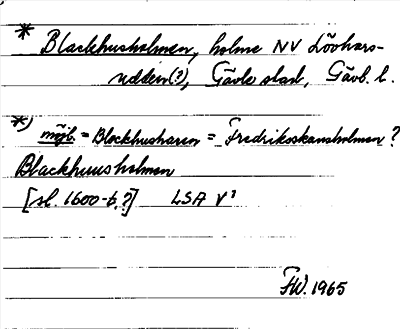 * Blackhusholmen, holme NV Lövhars-
udden(?), Gävle stad, Gävl. l.
*) möjl. = Blockhusharen = Fredriksskansholmen?
Blackhuusholmen
[sl. 1600-t.?] LSA V¹
FW. 1965